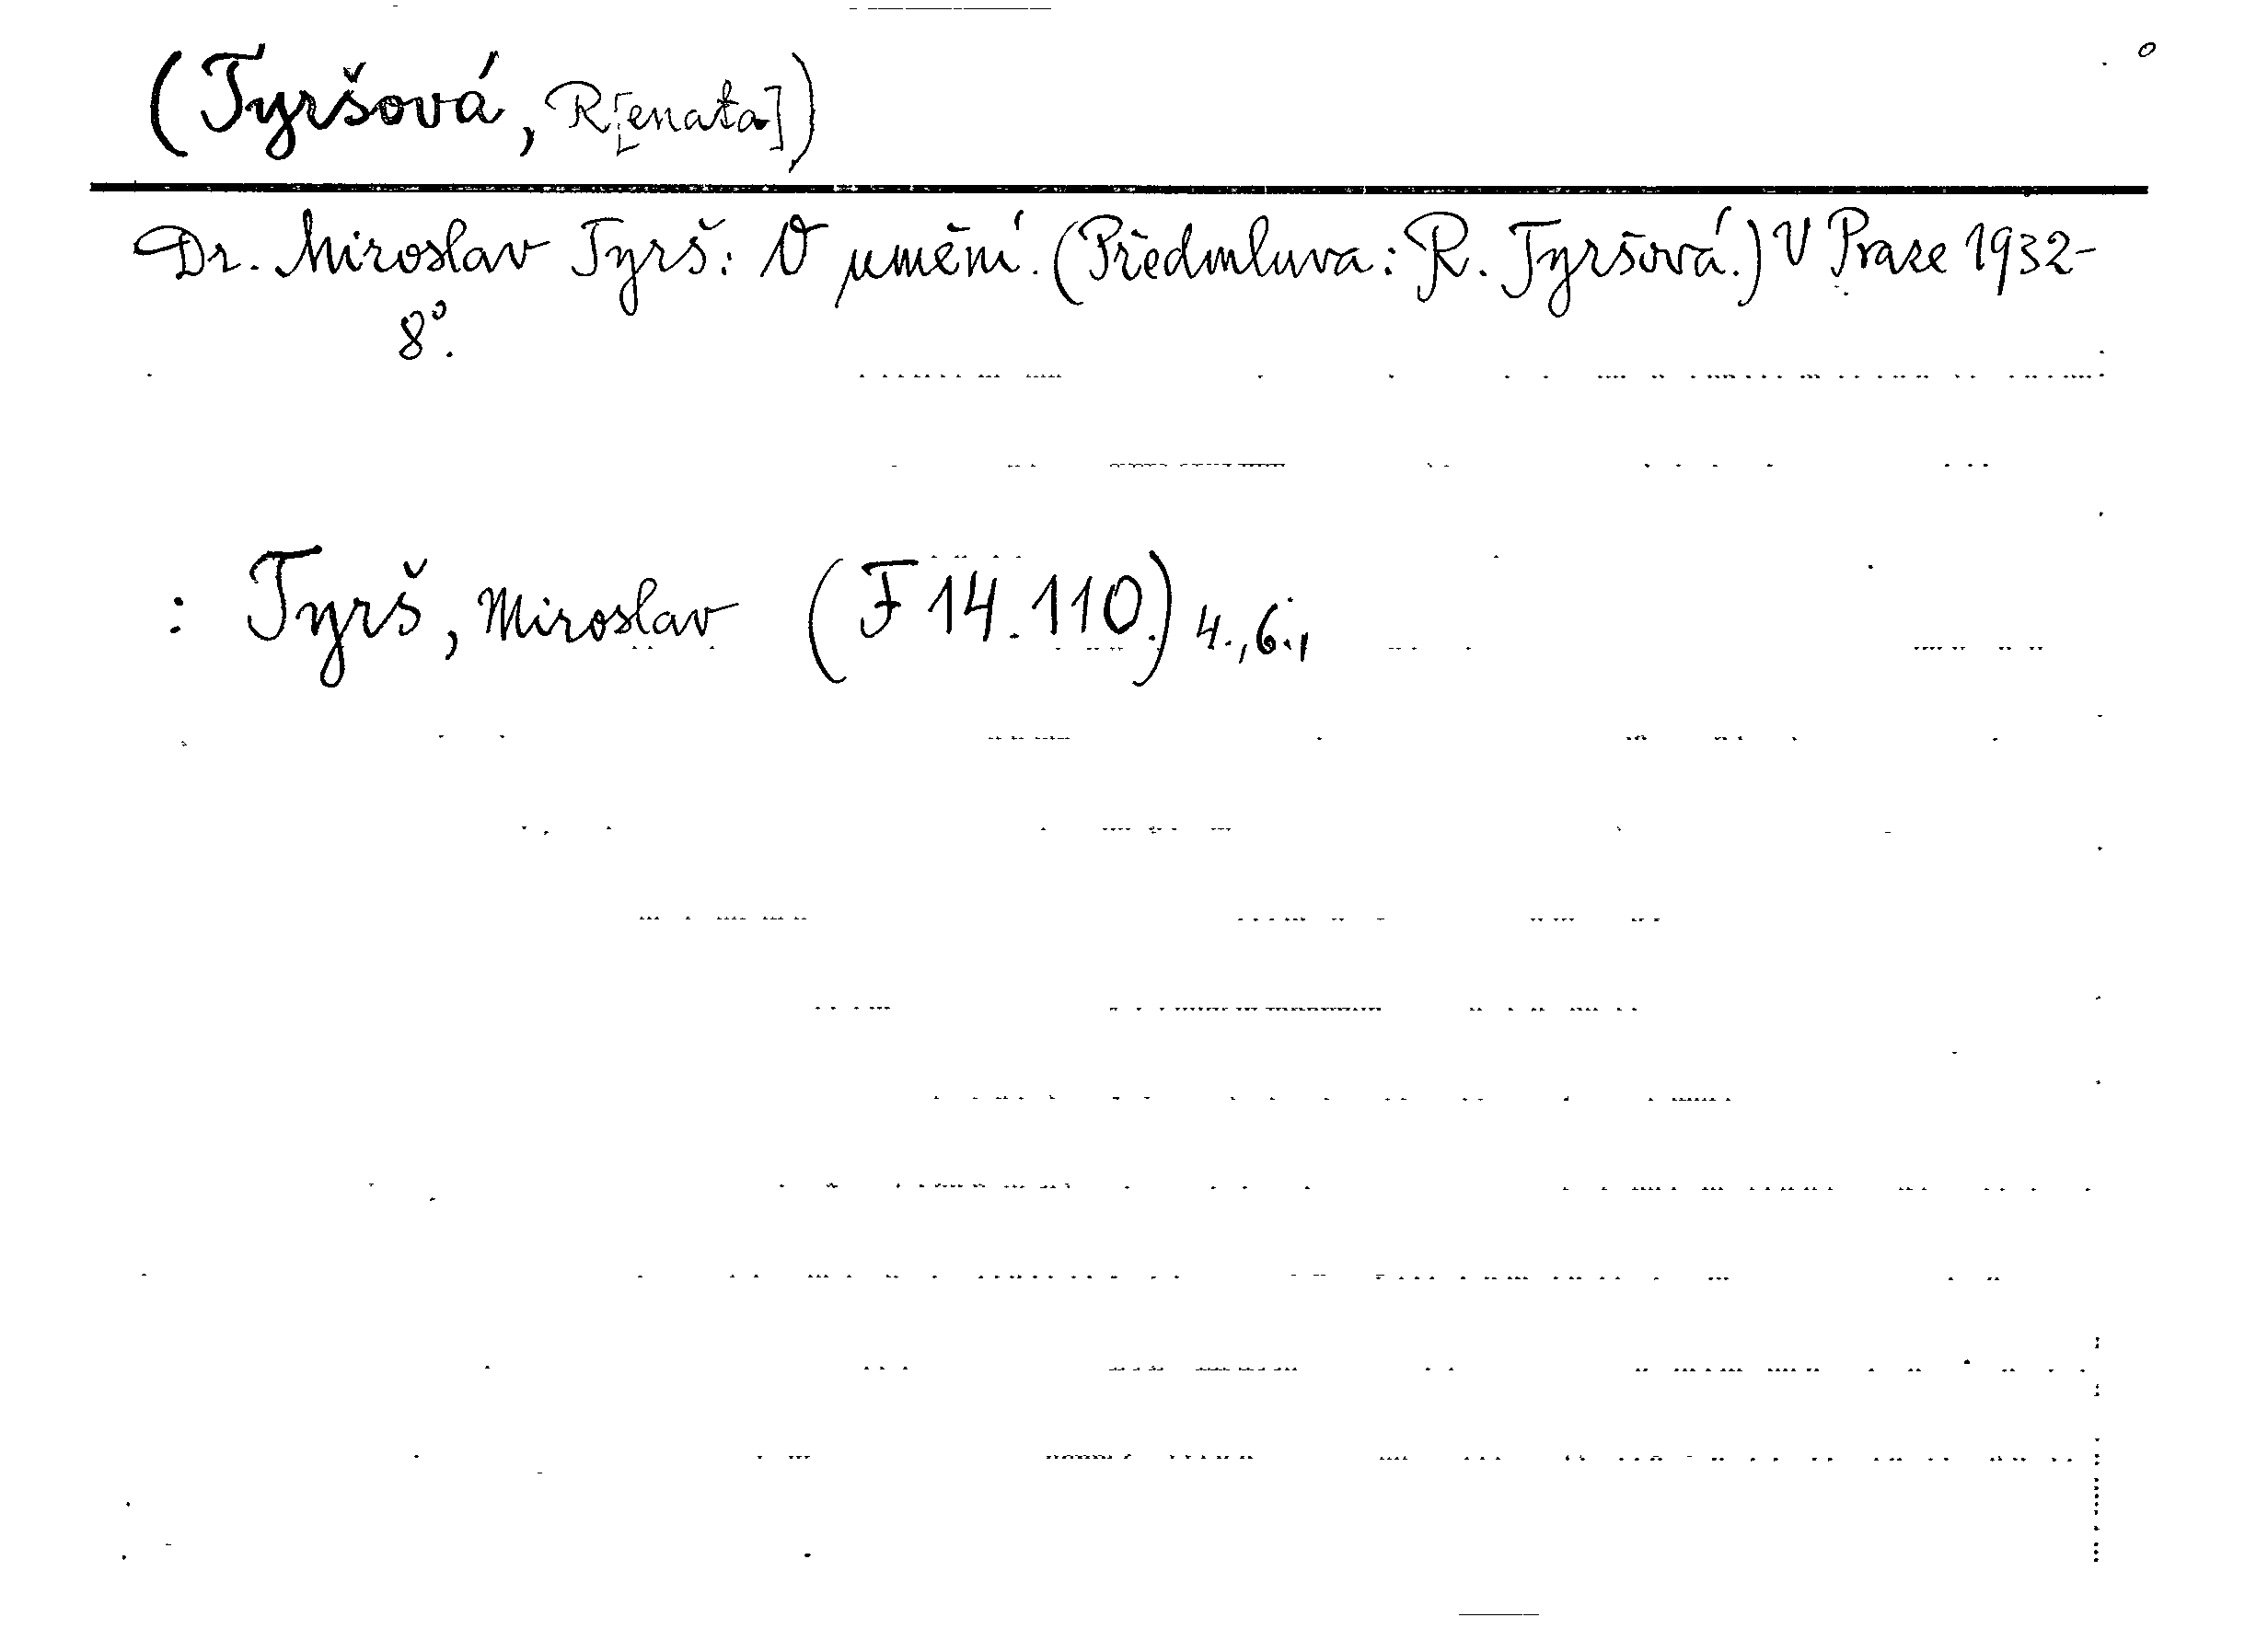 (Tyršová, R[enata])
Dr. Miroslav Tyrš: O umění. (Předmluva: R. Tyršová.) V Praze 1932-
8°.
: Tyrš, Miroslav (F 14.110.) 4., 6.,